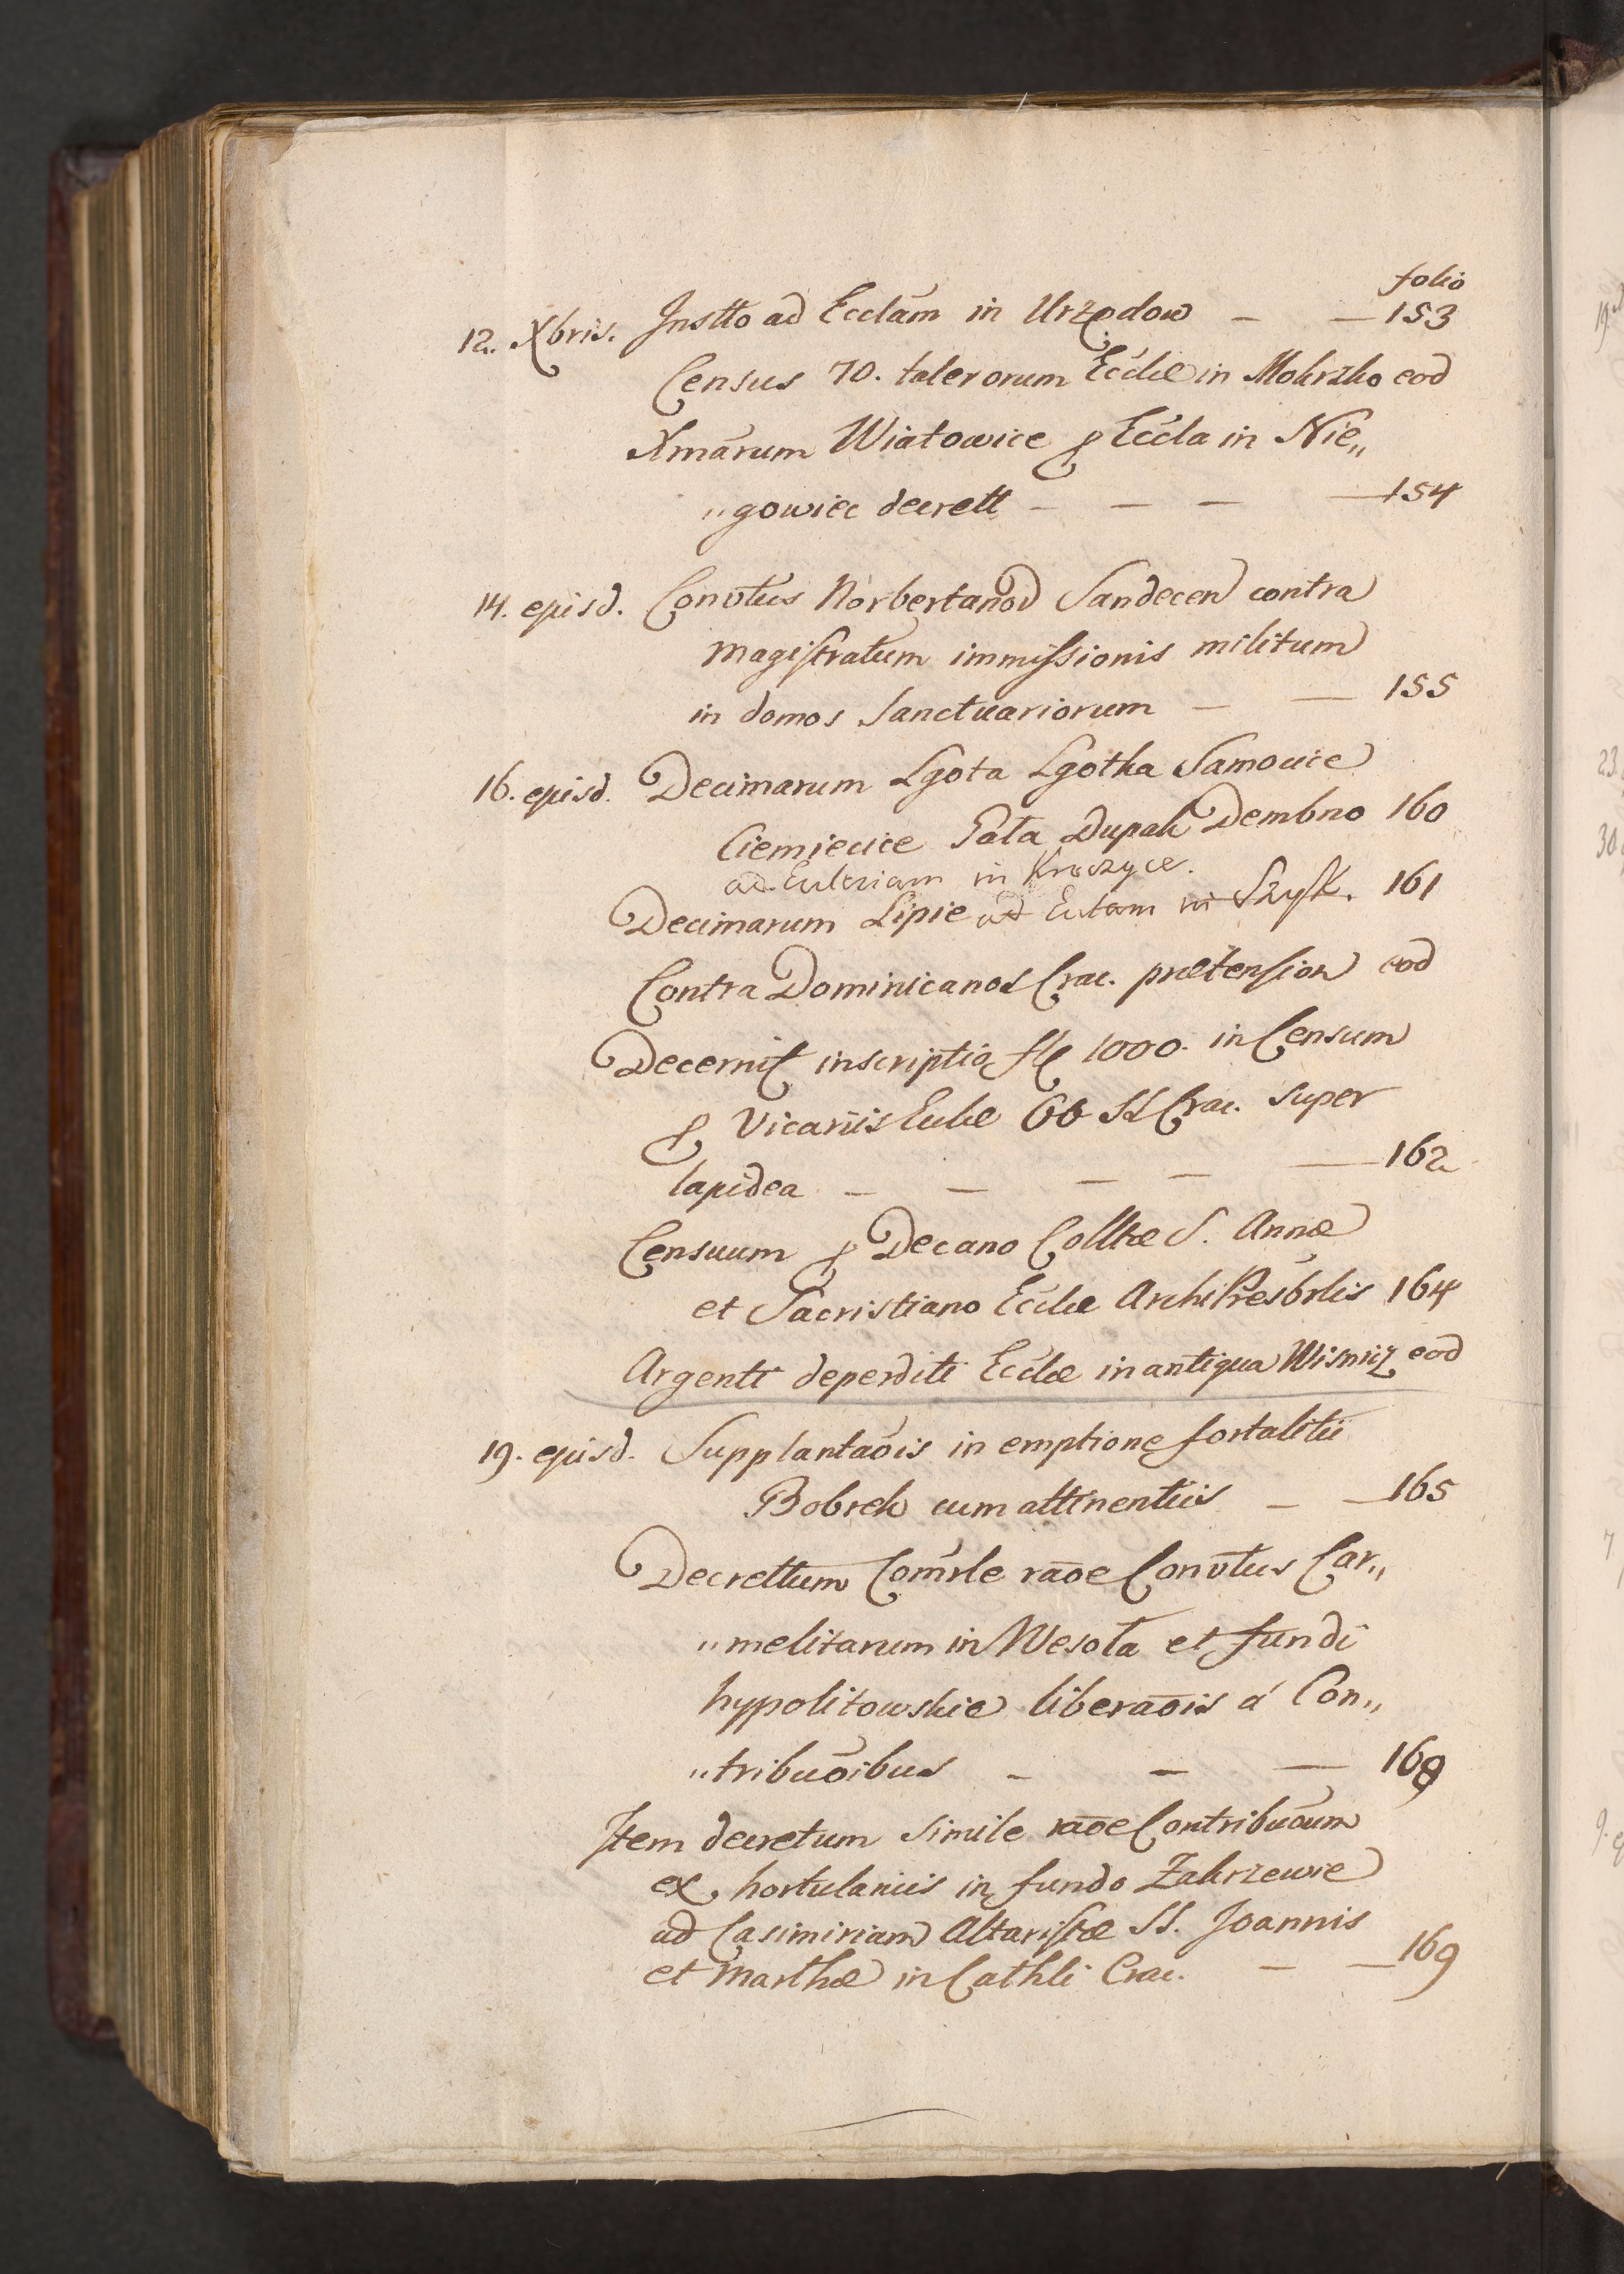 folio
12. Xbris. Instto ad Ecclām in Urzędow — — 153
Census 70. talerorum Eccliæ in Mokrzko eod
Xmārum Wiatowice p Eccla in Nie„
„gowiec decrett — — — — 154
14. ejusd. Convtus Norbertanoꝝ Sandecen contra
Magistratum immissionis militum
in domos Sanctuariorum — — 155
16. ejusd. Decimarum Lgota Lgotka Samocice
Ciemiecice Pała Dupak Dembno 160
ad Ecclesiam in Kroszyce.
Decimarum Lipie ad Eccłam in Szysk. 161
Contra Dominicanos Crac. prætension eod
Decernit inscriptio fl 1000. in Censum
p Vicariis Eccliæ OO SS Crac. super
lapidea — — — — — 162
Censuum p Decano Colltæ S. Annæ
et Sacristiano Eccliæ ArchiPresbrlis 164
Argenti deperditi Eccliæ in antiqua Wisnicz eod
19. ejusd. Supplantaōis in emptione fortalitii
Bobrek cum attinentiis — — 165
Decrettum Comrle raōe Convtus Car„
„melitarum in Wesoła et fundi
hypolitowskie liberaōis á Con„
„tribuōibus — — — 168
Item decretum simile raōe Contribuōum
ex hortulaniis in fundo Zakrzewie
ad Casimiriam Altaristæ SS. Joannis
et Marthæ in Cathli Crac. — — 169